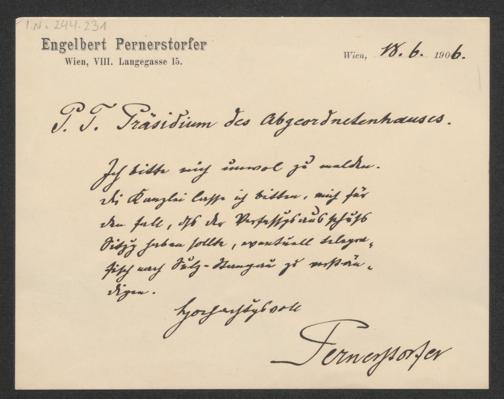 I.N. 244.231
Engelbert Pernerstorfer
Wien, VIII. Langegasse 15.
Wien, 18. 6. 1906.
P. T. Präsidium des Abgeordnetenhauses.
Ich bitte mich unwol zu melden.
Die Kanzlei lasse ich bitten, mich für
den Fall, dß der Verfassgsausschuß
Sitzg haben sollte, eventuell telegra-
fisch nach Sulz-Stangau zu verstän-
digen.
Hochachtgsvoll
Pernerstorfer